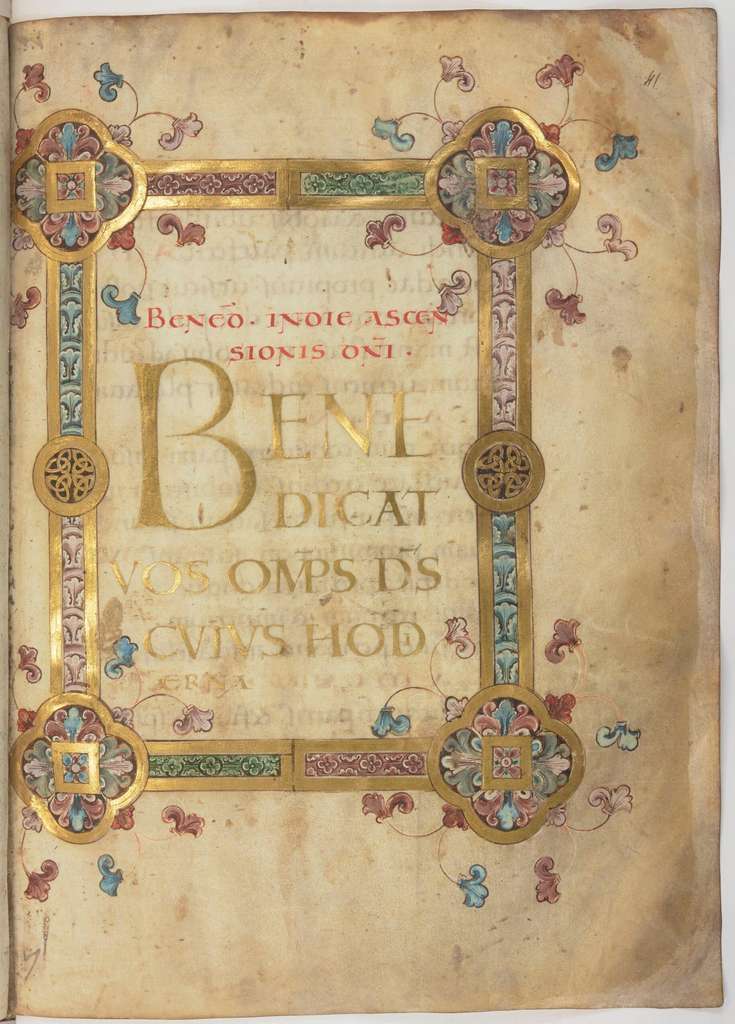 41
BENED̄ · INDIE ASCEN
SIONIS DN̄I ·
BENE
DICAT
VOS OM̄PS D̄S
CVIVS HODI
ERNA